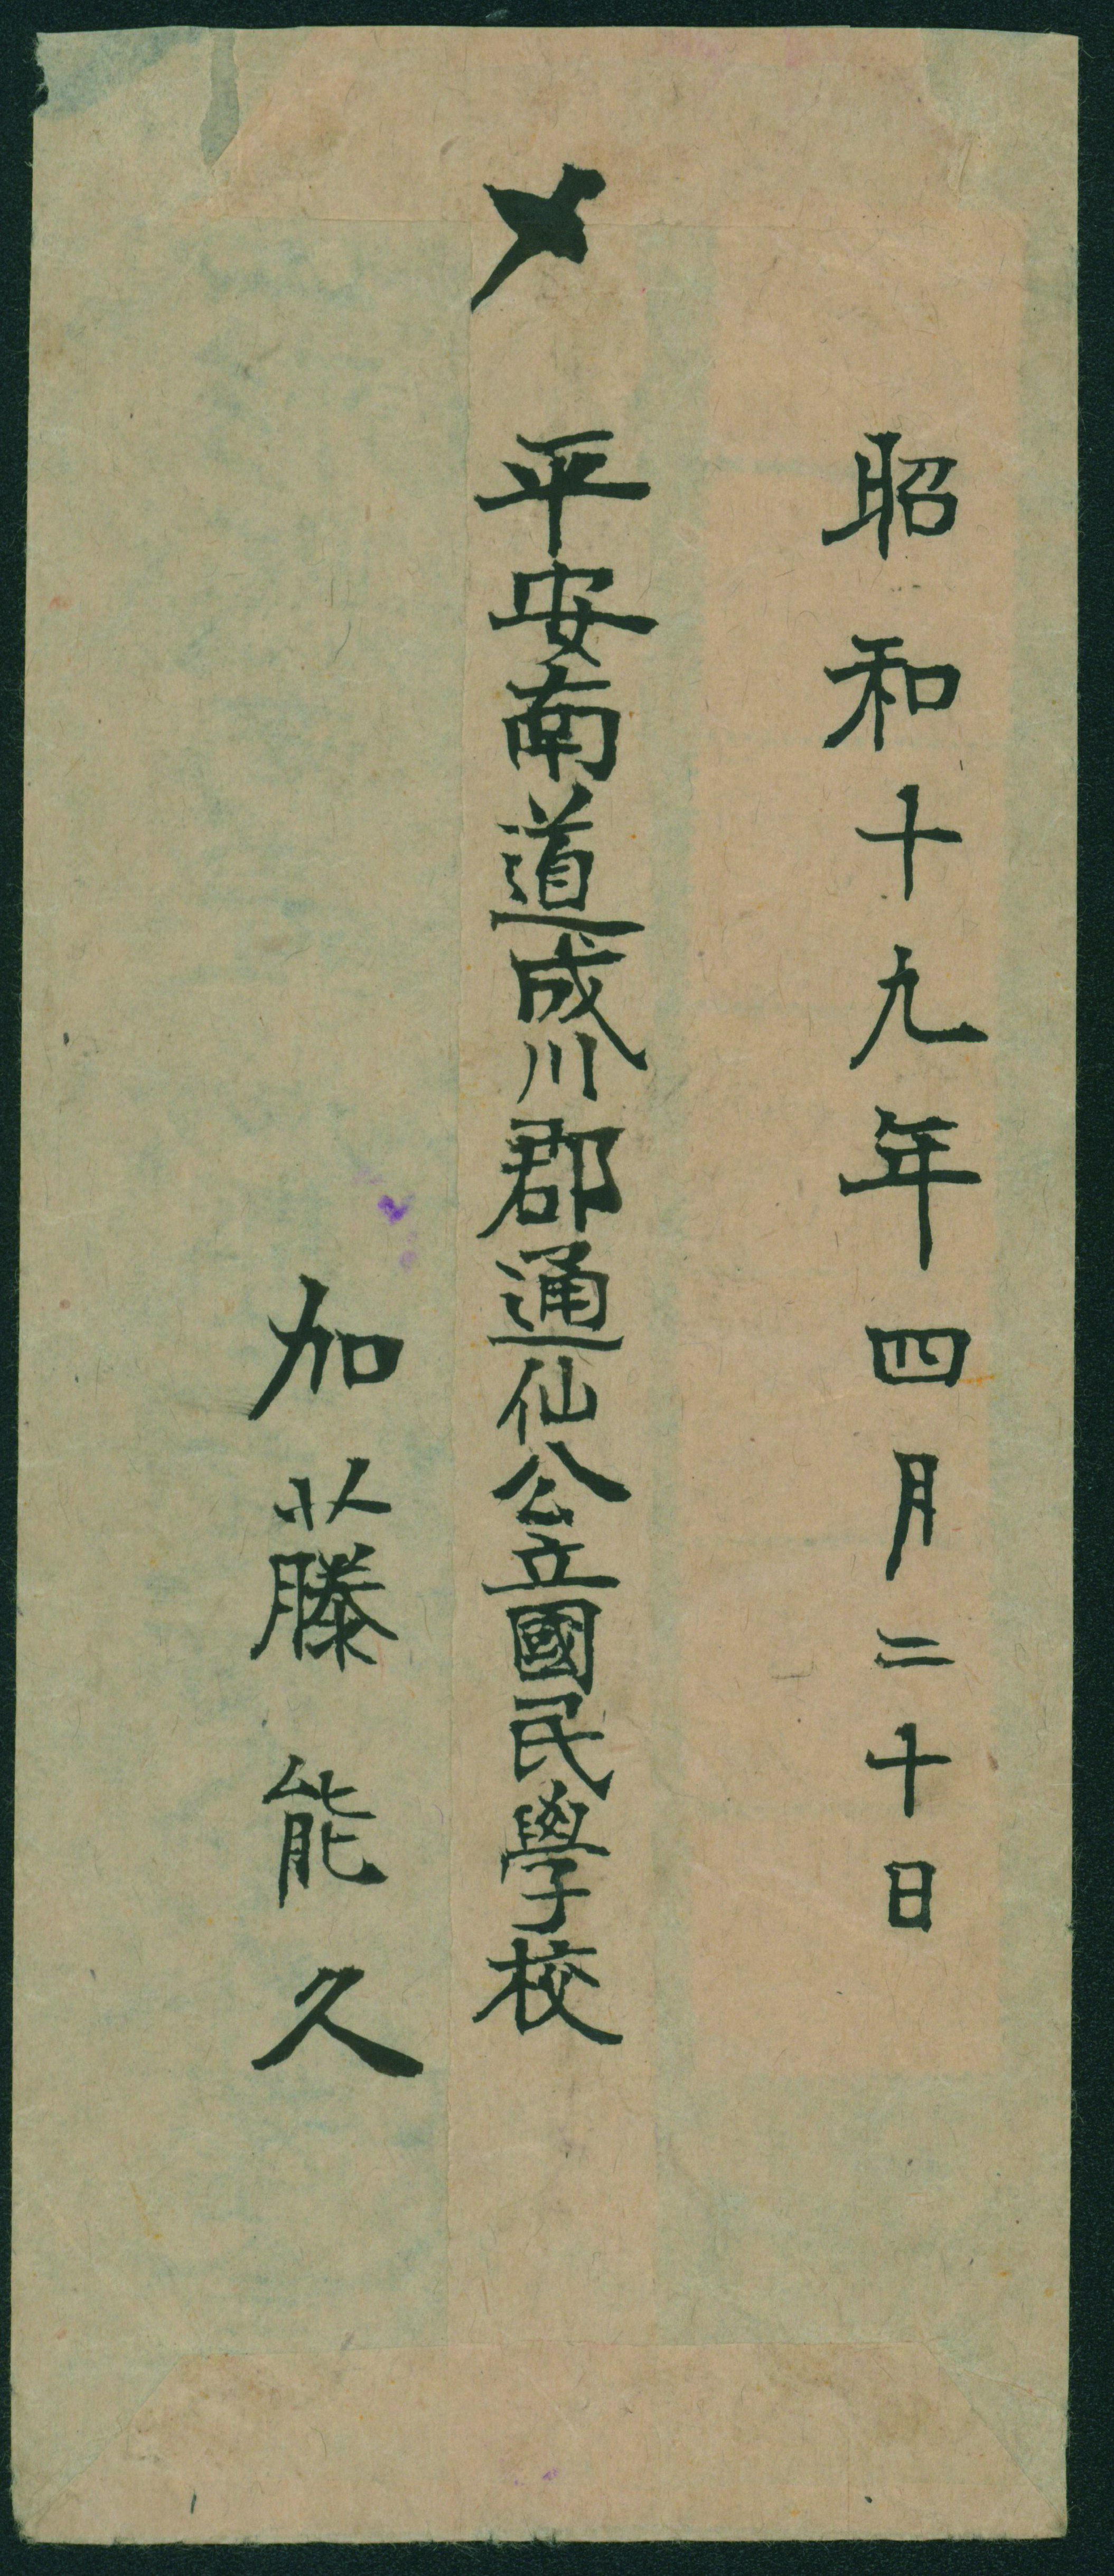 昭和十九年四月二十日
〆
平安南道成川郡通仙公立國民學校
加藤能久